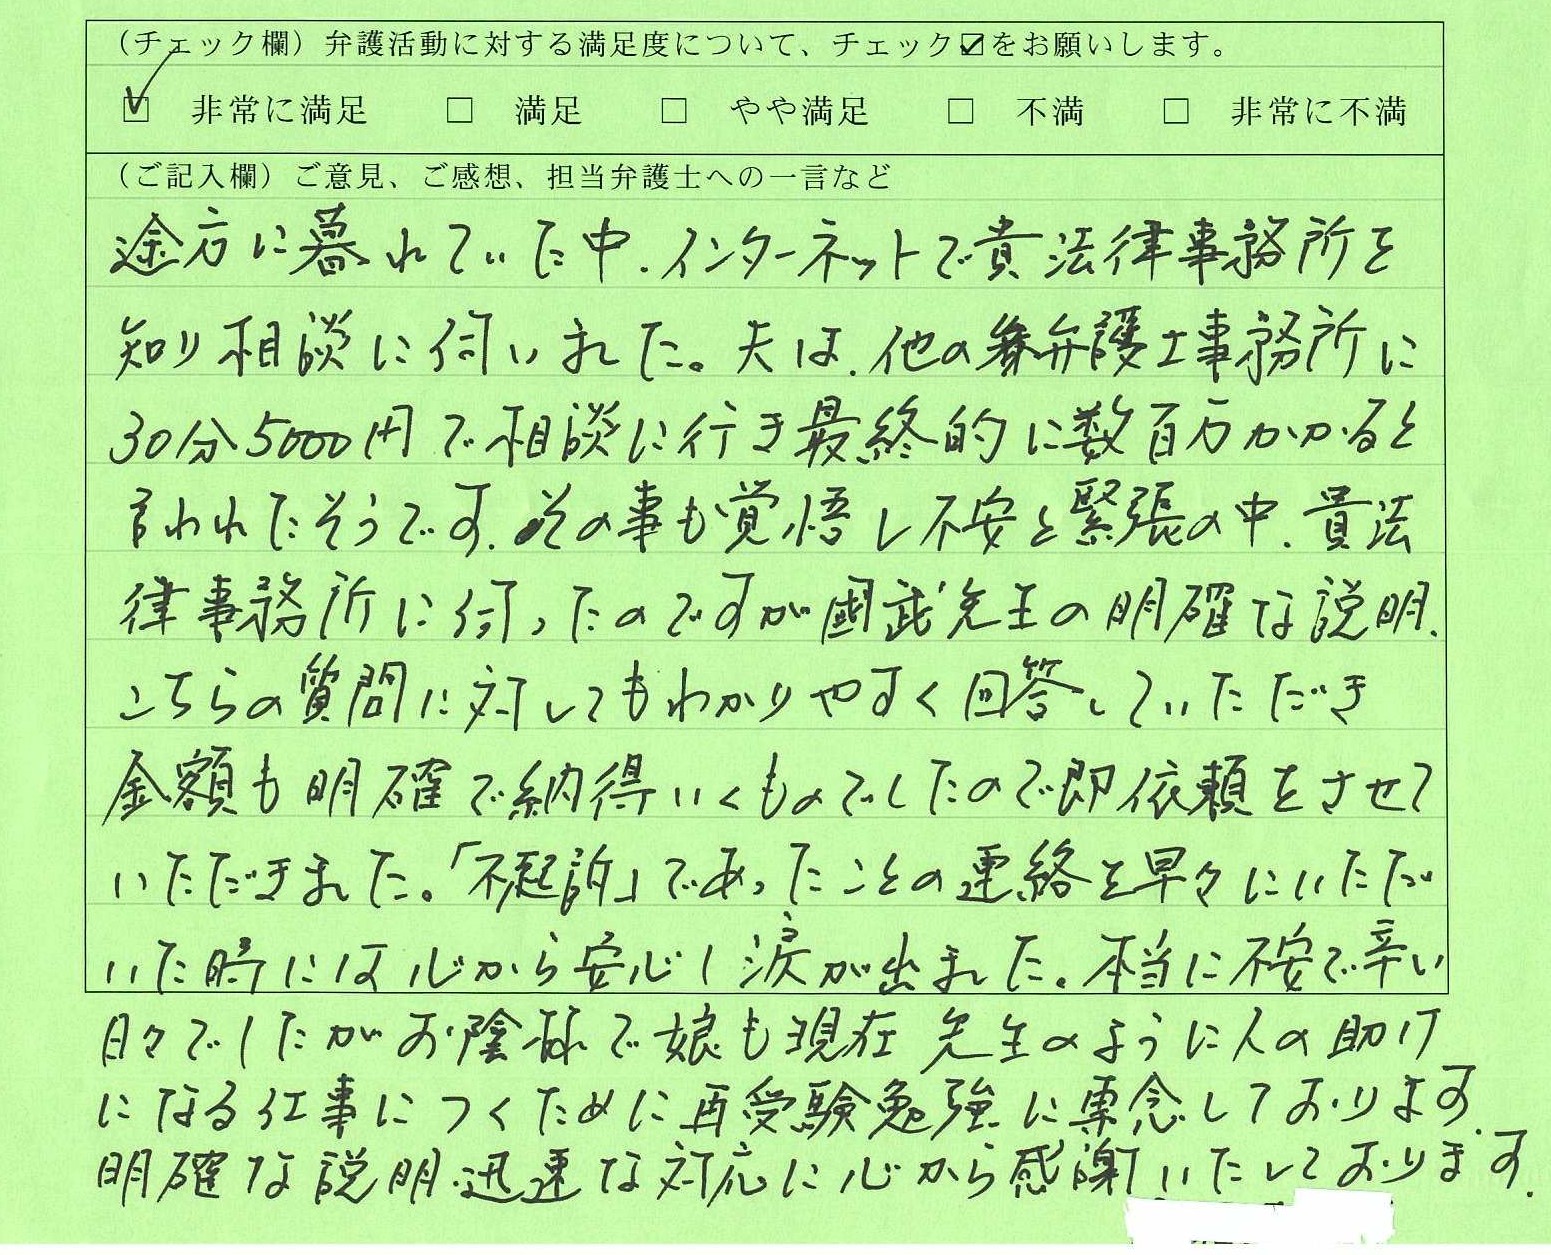 （チェック欄）弁護活動に対する満足度について、チェック☑をお願いします。
☑ 非常に満足 □ 満足 □ やや満足 □ 不満 □ 非常に不満
（ご記入欄）ご意見、ご感想、担当弁護士への一言など
途方に暮れていた中、インターネットで貴法律事務所を
知り相談に伺いました。夫は、他の弁護士事務所に
30分5000円で相談に行き最終的に数百万かかると
言われたそうです。その事も覚悟し不安と緊張の中、貴法
律事務所に伺ったのですが國武先生の明確な説明、
こちらの質問に対してもわかりやすく回答していただき
金額も明確で納得いくものでしたので即依頼をさせて
いただきました。「不起訴」であったことの連絡を早々にいただ
いた時には心から安心し涙が出ました。本当に不安で辛い
日々でしたがお陰様で娘も現在 先生のように人の助け
になる仕事につくために再受験勉強に専念しております。
明確な説明、迅速な対応に心から感謝いたしております。